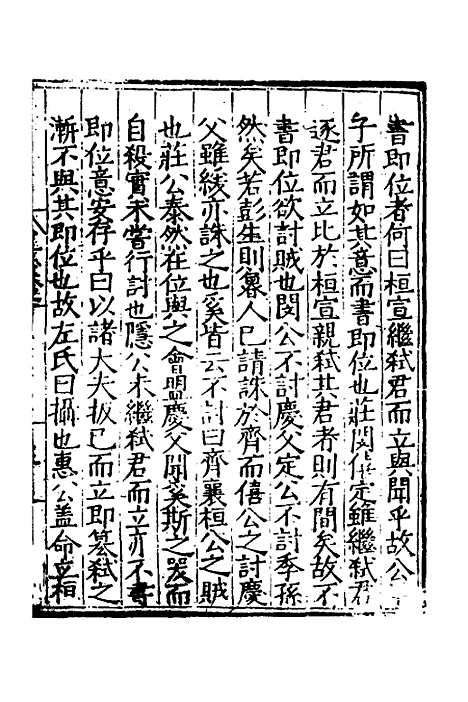 書即位者何曰桓宣繼弑君而立與聞乎故公
子所謂如其意而書即位也莊閔僖定雖繼弑君
逐君而立比於桓宣親弑其君者則有間矣故不
書即位欲討賊也閔公不討慶父定公不討季孫
然矣若彭生則魯人已請誅於齊而僖公之討慶
父雖緩亦誅之也奚皆云不討曰齊襄桓公之賊
也莊公泰然在位與之會盟慶父聞奚斯之哭而
自殺實未嘗行討也隱公未繼弑君而立亦不書
即位意安存乎曰以諸大夫扳已而立即簒弑之
漸不與其即位也故左氏曰攝也惠公盖命立桓